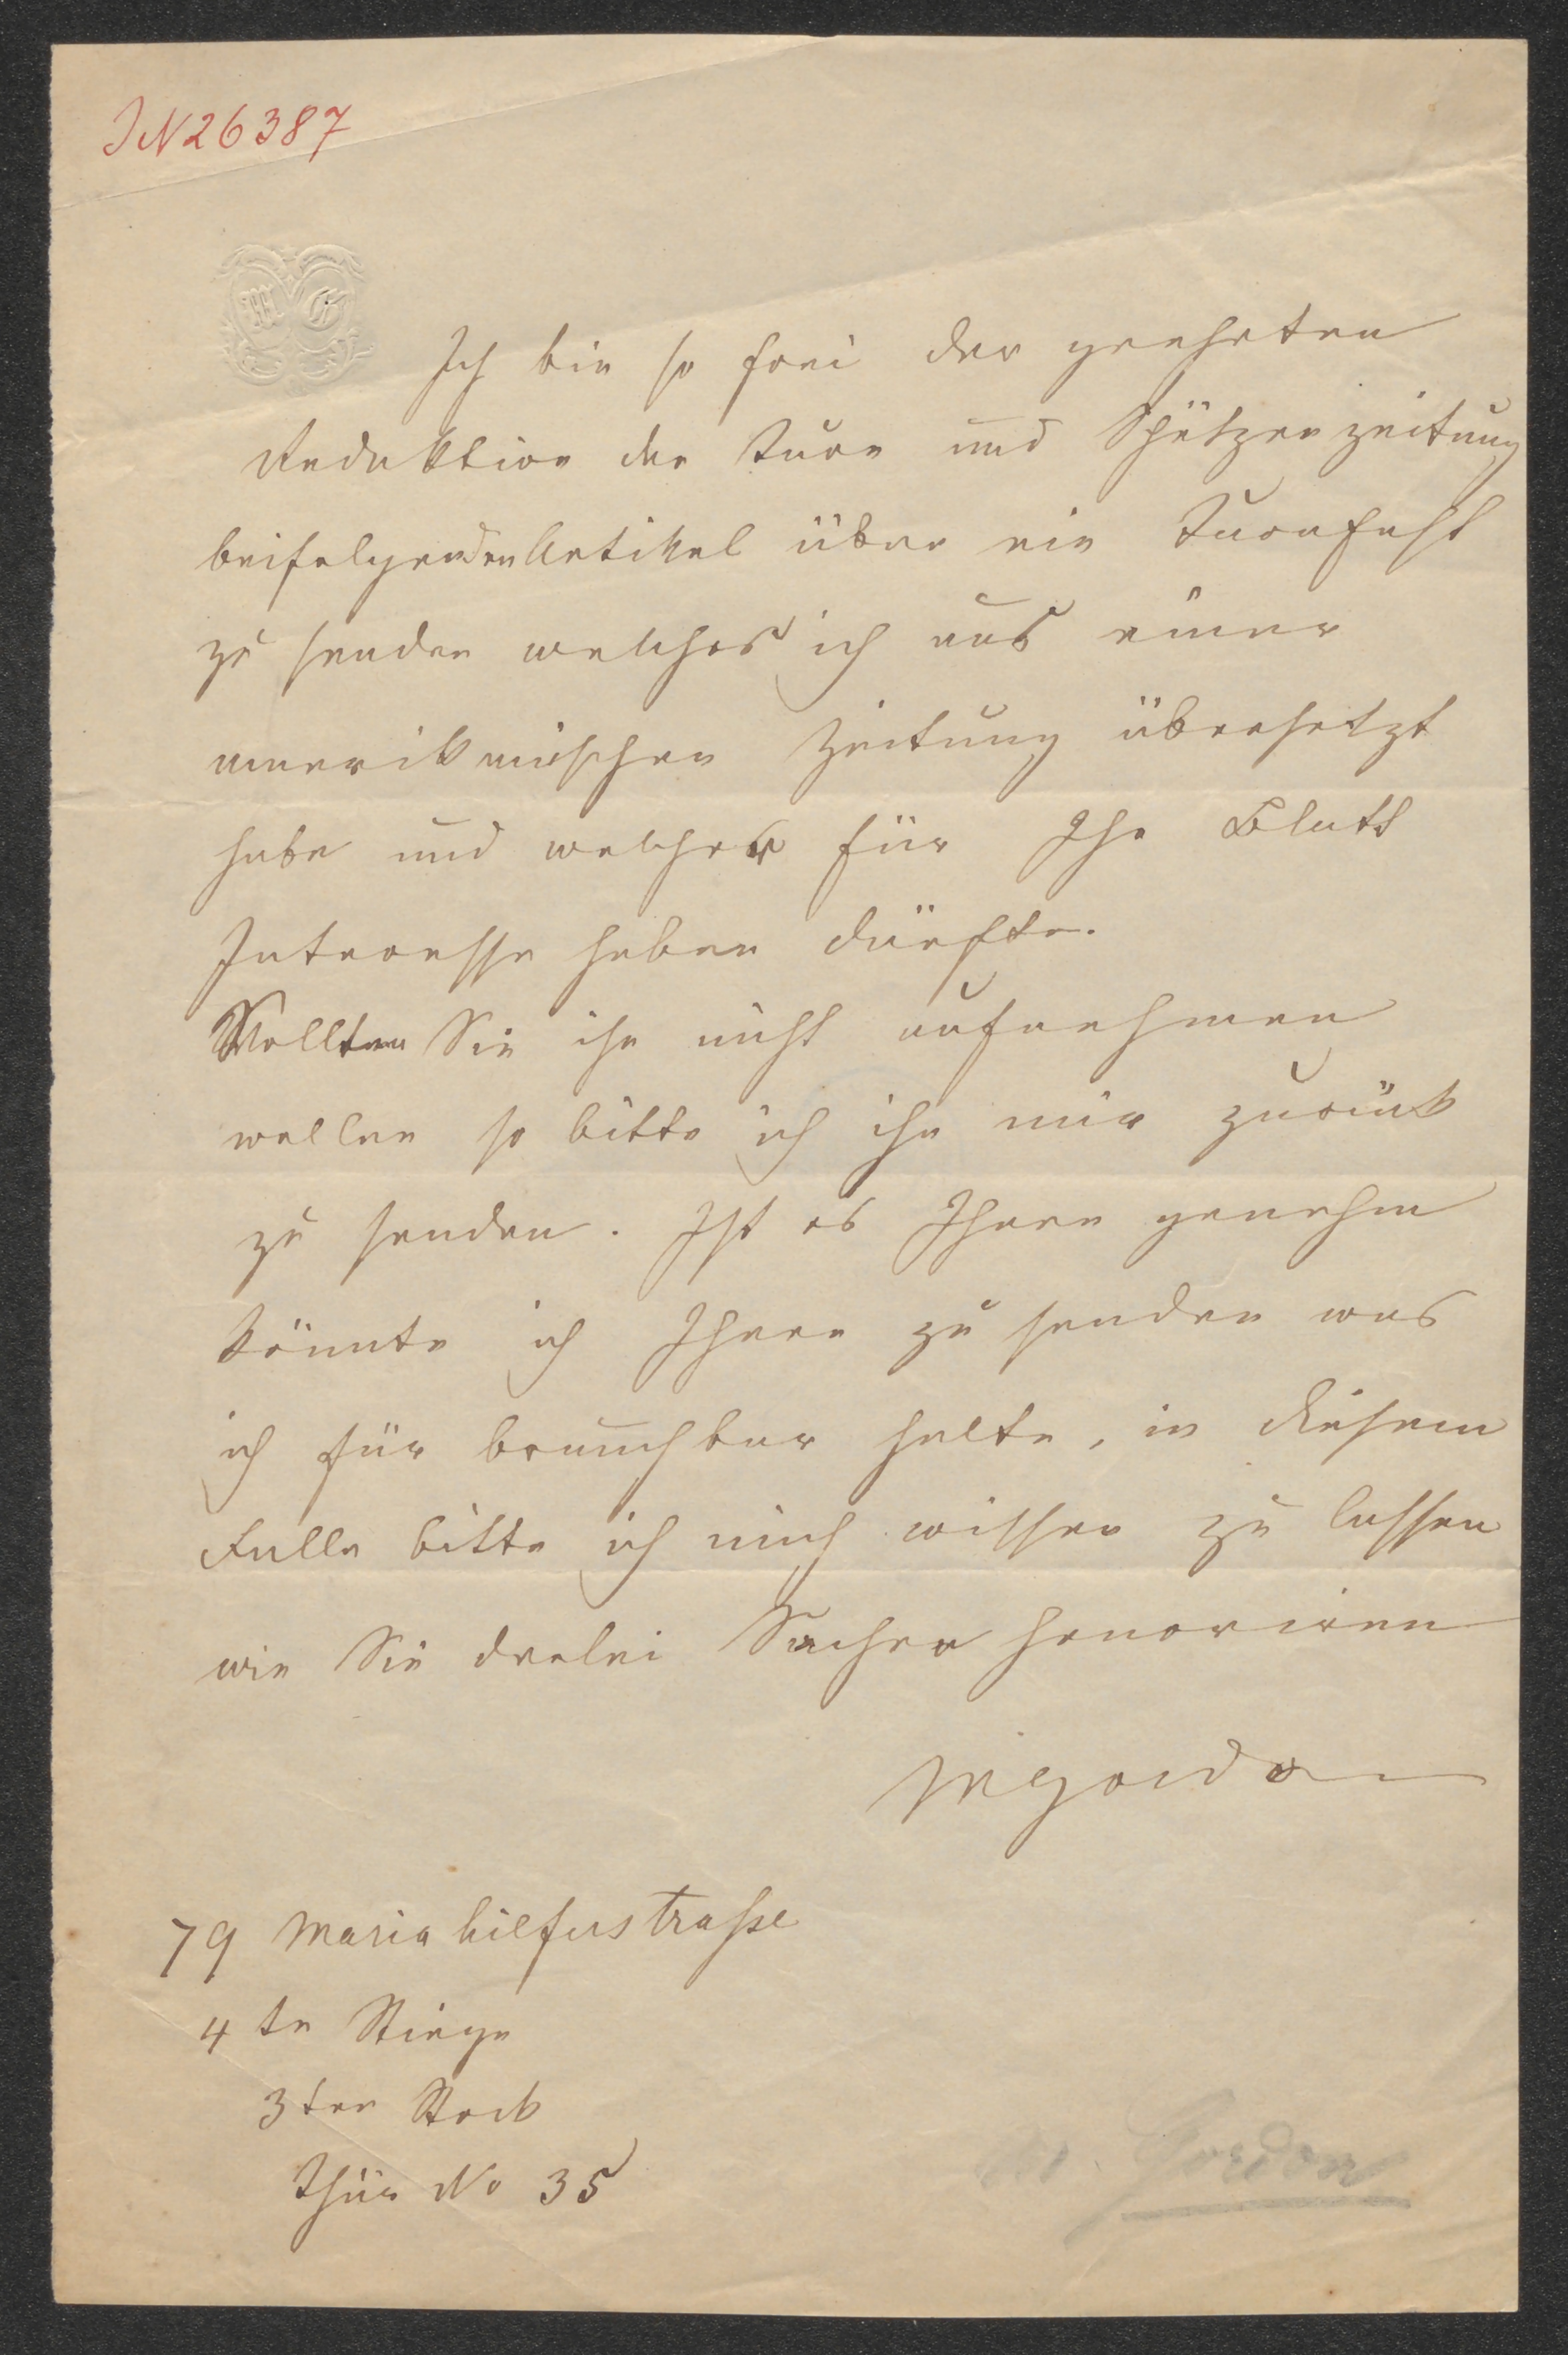 IN 26387
M G
Ich bin so frei der geehrten
Redaktion der Turn und Schützenzeitung
beifolgenden Artikel über ein Turnfest
zu senden welches ich aus einer
amerikanischen Zeitung übersetzt
habe und welcher für Ihr Blatt
Interesse haben dürfte.
Wollten Sie ihn nicht aufnehmen
wollen so bitte ich ihn mir zurück
zu senden. Ist es Ihnen genehm
könnte ich Ihnen zu senden was
ich für brauchbar halte, in diesem
Falle bitte ich mich wissen zu lassen
wie Sie derlei Sachen honoriren
MGordon
79 Mariahilferstraße
4te Stiege
3ten Stock
Thür No 35
M. Gordon